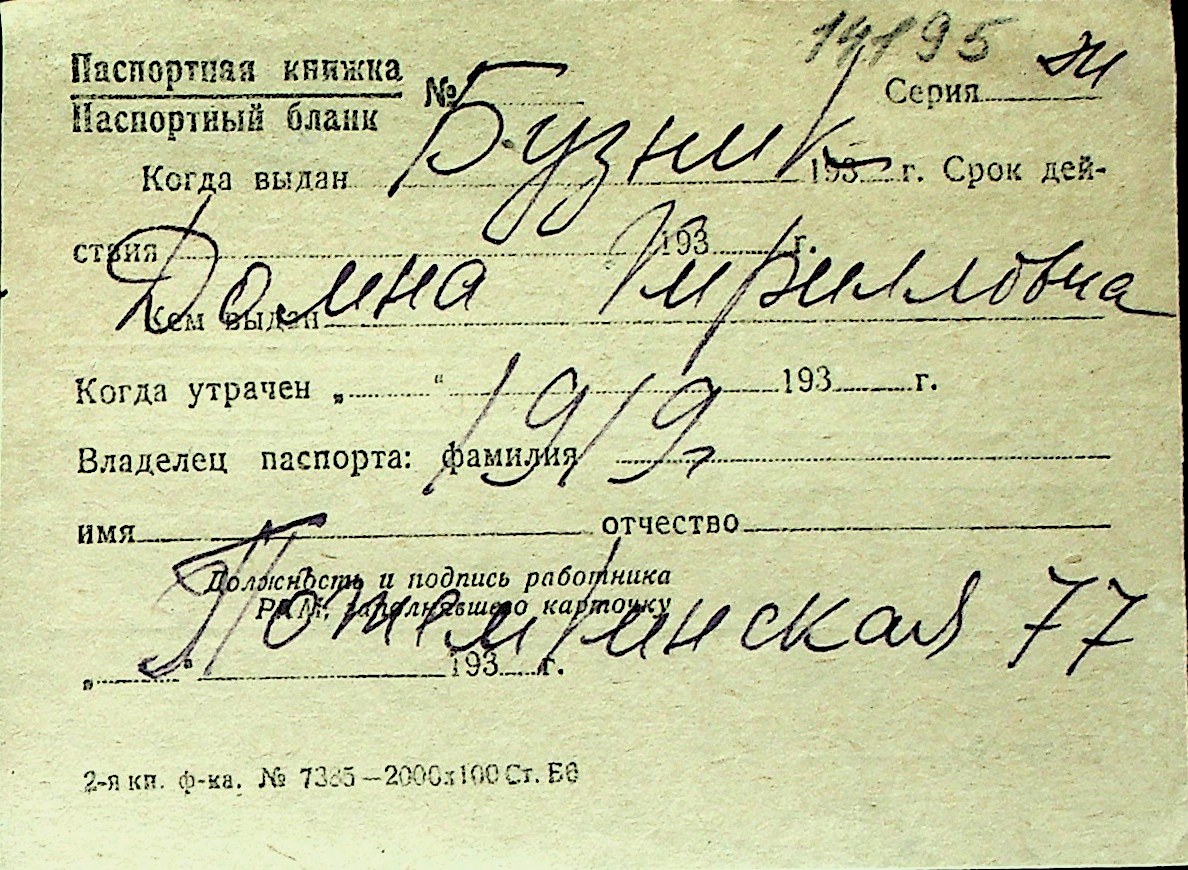 14195 ж
Паспортная книжка
Паспортный бланк № Серия
Бузник
Когда выдан 193 г. Срок дей-
ствия 193 г.
Домна Кирилловна
Кем выдан
Когда утрачен „ “ 193 г.
1919 г
Владелец паспорта: фамилия
имя отчество
Должность и подпись работника
РКМ, заполнявшего карточку
Потемкинская 77
„ “ 193 г.
2-я кн. ф-ка. № 7385—2000х100 Ст. Бб